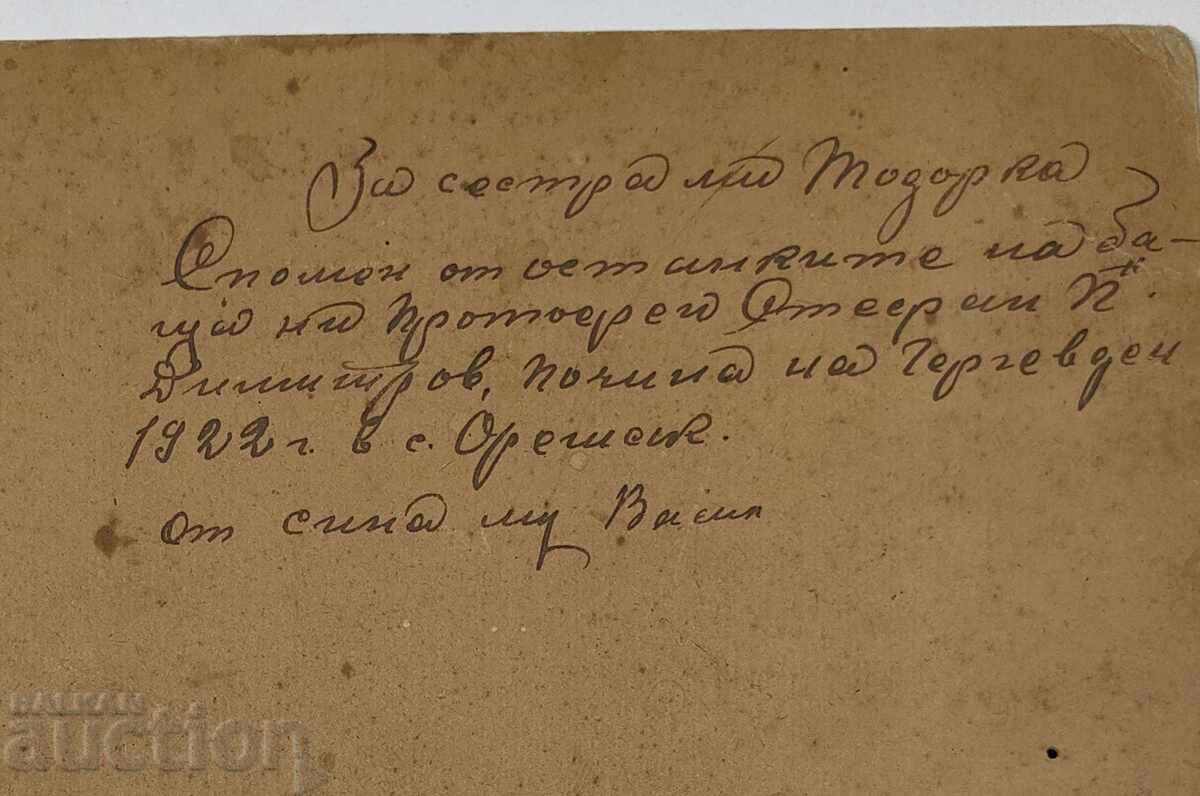 За сестра ми Тодорка
Спомен от останките на ба-
ща ни Протоерей Стефан П.
Димитров, почина на Гергевден
1922 г. в с. Орешак.
от сина му Васил
BALKAN
auction